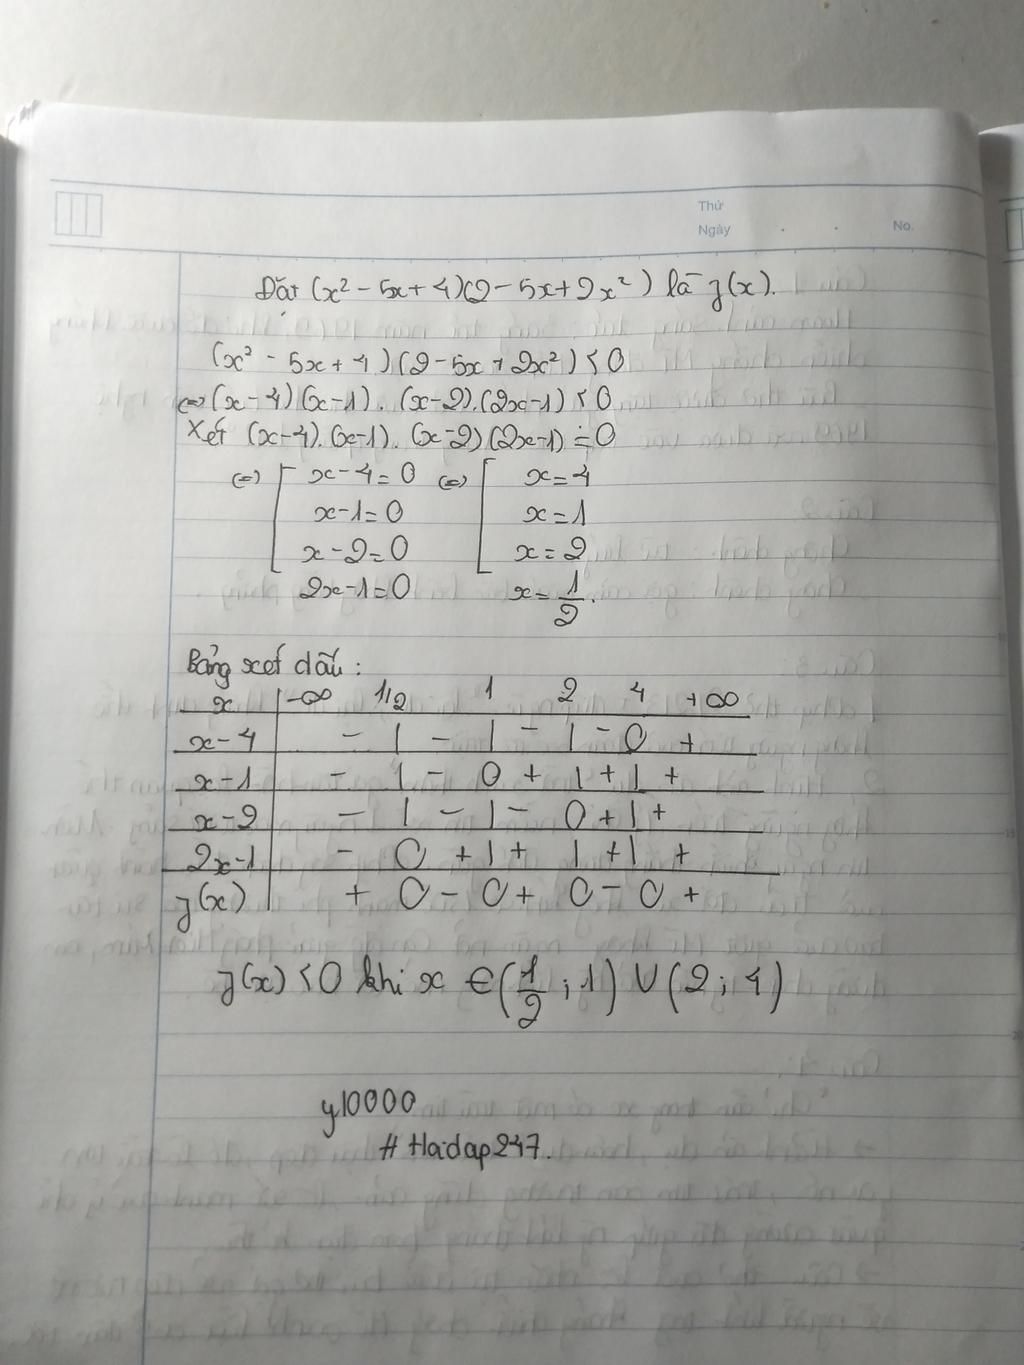 Thứ
Ngày . . No.
Đặt (x² - 5x + 4)(2 - 5x + 2x²) là g(x).
(x² - 5x + 4)(2 - 5x + 2x²) < 0
⇔ (x-4)(x-1).(x-2).(2x-1) < 0
Xét (x-4).(x-1).(x-2)(2x-1) = 0
⇔ [ x-4=0 ⇔ [ x=4
x-1=0 x=1
x-2=0 x=2
2x-1=0 x=1/2.
Bảng xét dấu :
x | -∞ 1/2 1 2 4 +∞
x-4 | - | - | - | - 0 +
x-1 | - | - 0 + | + | +
x-2 | - | - | - 0 + | +
2x-1 | - 0 + | + | + | +
g(x) | + 0 - 0 + 0 - 0 +
g(x) < 0 khi x ∈ (1/2 ; 1) ∪ (2 ; 4)
y10000
# Hoidap247.